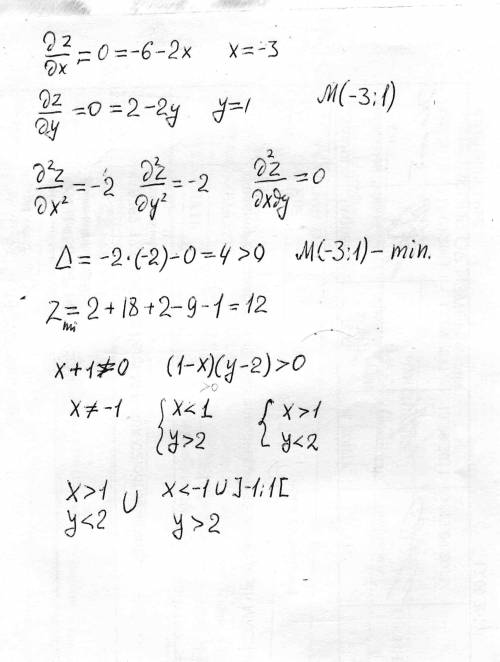 ∂z/∂x = 0 = -6 - 2x x = -3
∂z/∂y = 0 = 2 - 2y y = 1 M(-3; 1)
∂²z/∂x² = -2 ∂²z/∂y² = -2 ∂²z/∂x∂y = 0
Δ = -2·(-2) - 0 = 4 > 0 M(-3:1) - min.
Z_mi = 2 + 18 + 2 - 9 - 1 = 12
x + 1 ≠ 0 (1-x)(y-2) > 0
>0
x ≠ -1 { x < 1 { x > 1
y > 2 y < 2
x > 1 ∪ x < -1 ∪ ]-1; 1[
y < 2 y > 2